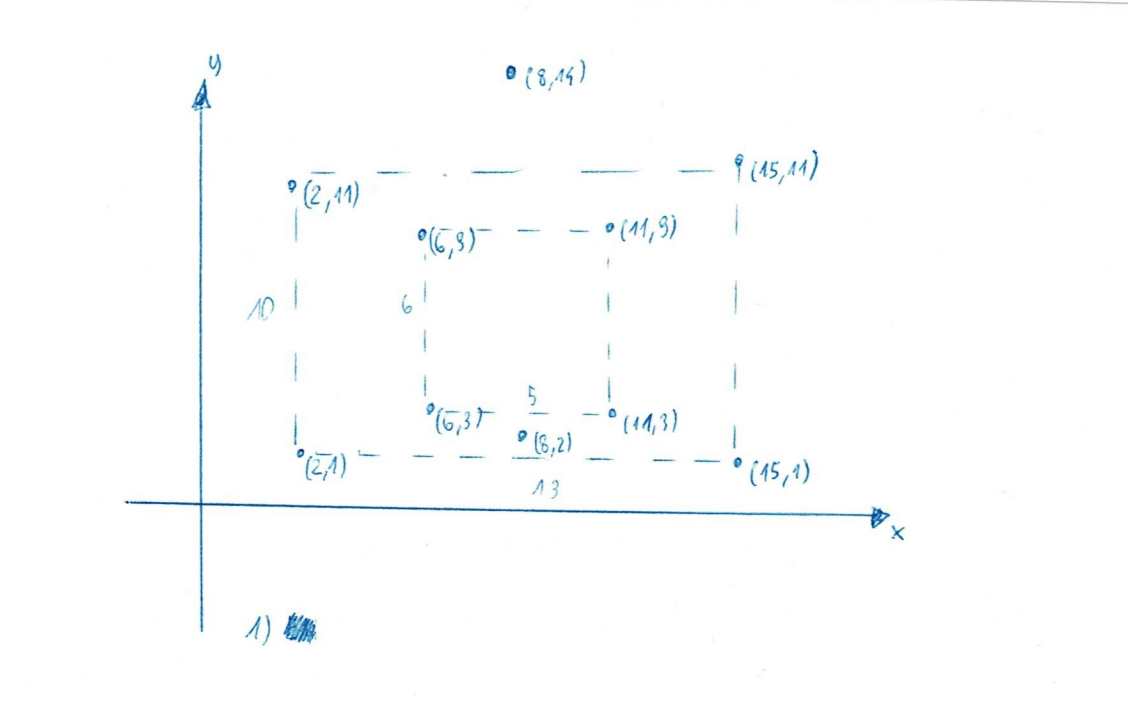 y
(8,14)
(2,11) (15,11)
(6,9) (11,9)
10 6
5
(6,3) (11,3)
(8,2)
(2,1) (15,1)
13
x
1)